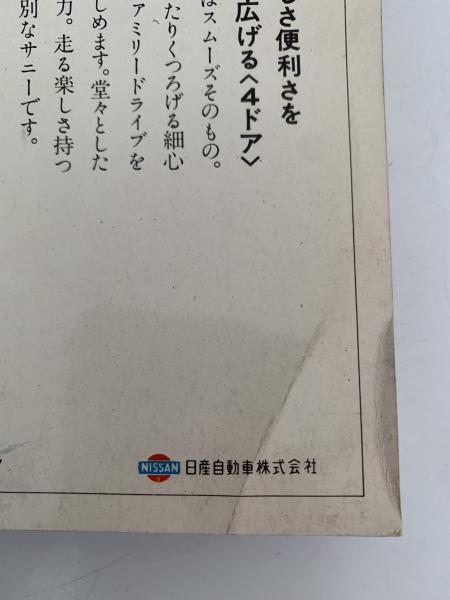 しさ便利さを
広げる〈4ドア〉
はスムーズそのもの。
たりくつろげる細心
ァミリードライブを
しめます。堂々とした
力。走る楽しさ持つ
別なサニーです。
NISSAN 日産自動車株式会社